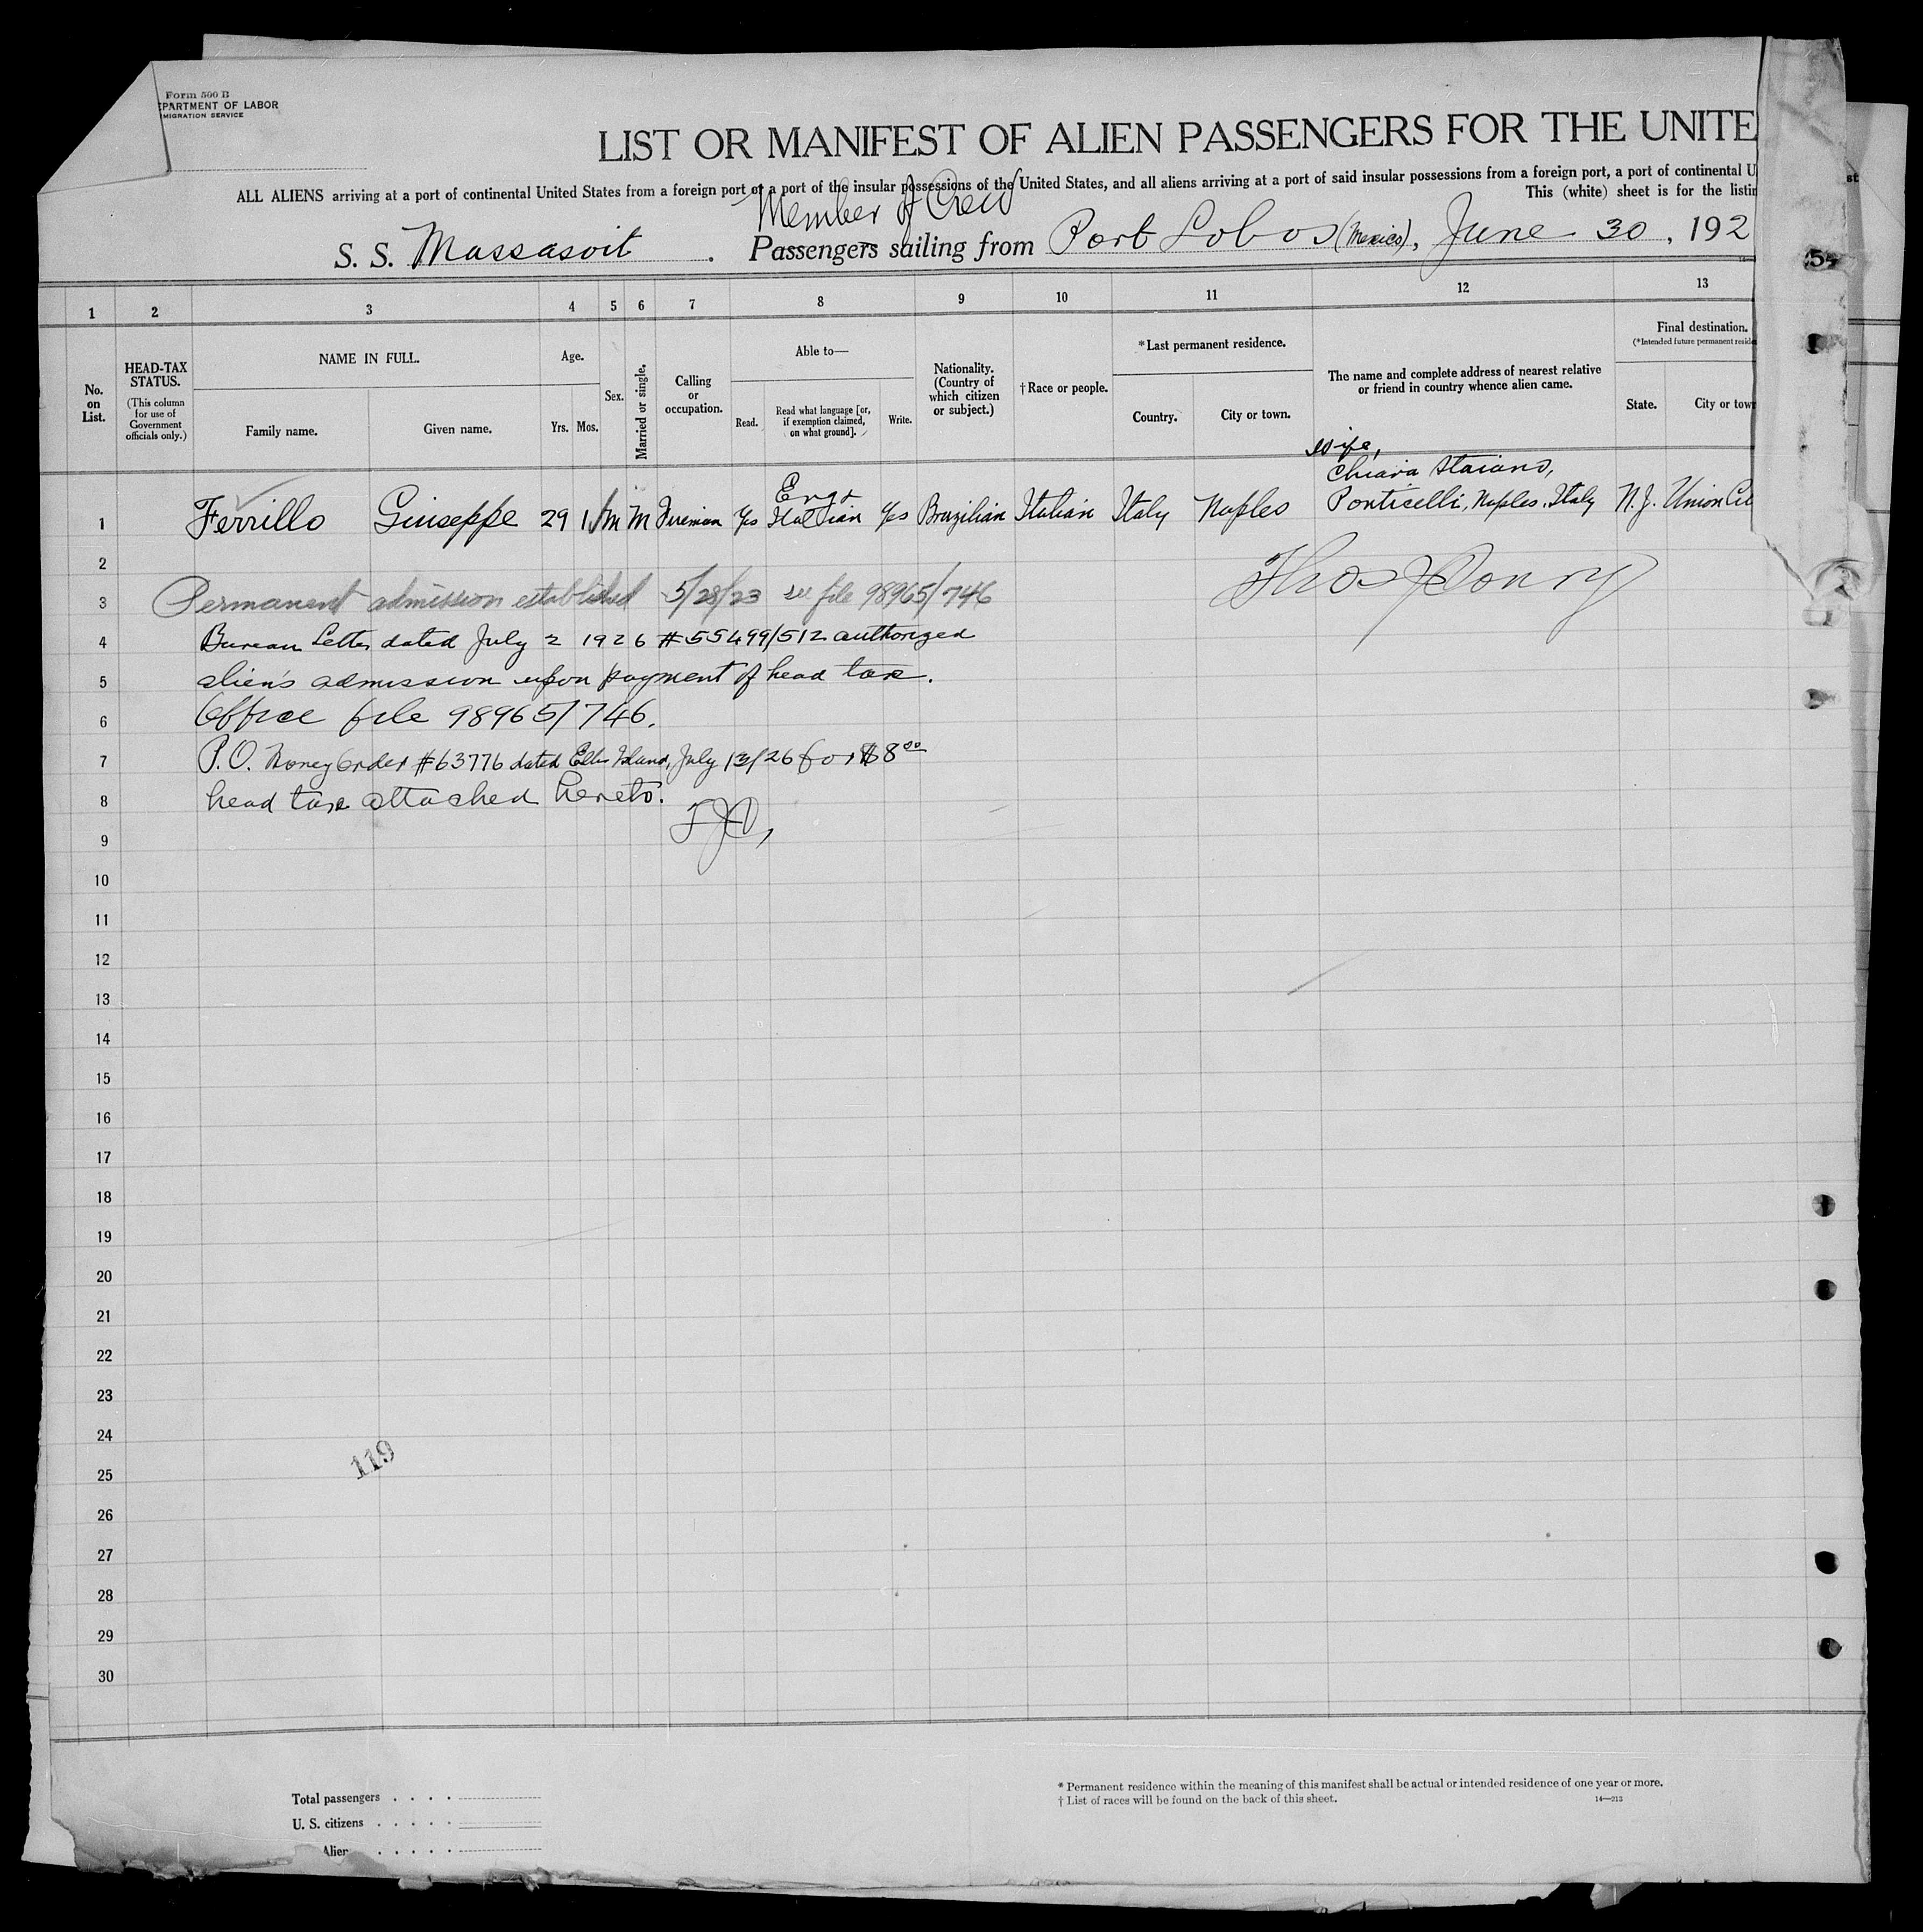 Form 500 B
EPARTMENT OF LABOR
MIGRATION SERVICE
LIST OR MANIFEST OF ALIEN PASSENGERS FOR THE UNITE
ALL ALIENS arriving at a port of continental United States from a foreign port or a port of the insular possessions of the United States, and all aliens arriving at a port of said insular possessions from a foreign port, a port of continental U
This (white) sheet is for the listin
Member of Crew
S. S. Massasoit . Passengers sailing from Port Lobos (Mexico), June 30, 192
1 2 3 4 5 6 7 8 9 10 11 12 13
No. on List.
HEAD-TAX STATUS.
(This column for use of Government officials only.)
NAME IN FULL.
Family name.
Given name.
Age.
Yrs. Mos.
Sex.
Married or single.
Calling or occupation.
Able to—
Read.
Read what language [or, if exemption claimed, on what ground].
Write.
Nationality. (Country of which citizen or subject.)
†Race or people.
*Last permanent residence.
Country.
City or town.
The name and complete address of nearest relative or friend in country whence alien came.
Final destination.
(*Intended future permanent reside
State.
City or town
wife,
Chiara Staiano,
Eng &
1 Ferrillo Giuseppe 29 1 m M Fireman Yes Italian Yes Brazilian Italian Italy Naples Ponticelli, Naples, Italy N.J. Union Cit
2
3 Permanent admission established 5/28/23 see file 98965/746
4 Bureau Letter dated July 2 1926 #55499/512 authorized
5 alien's admission upon payment of head tax.
6 Office file 98965/746.
7 P.O. Money Order #63776 dated Ellis Island, July 13/26 for $8 00
8 head tax attached hereto.
9
10
11
12
13
14
15
16
17
18
19
20
21
22
23
24
119
25
26
27
28
29
30
Total passengers . . . .
U. S. citizens . . . . .
Alien . . . . .
* Permanent residence within the meaning of this manifest shall be actual or intended residence of one year or more.
† List of races will be found on the back of this sheet.
14—213